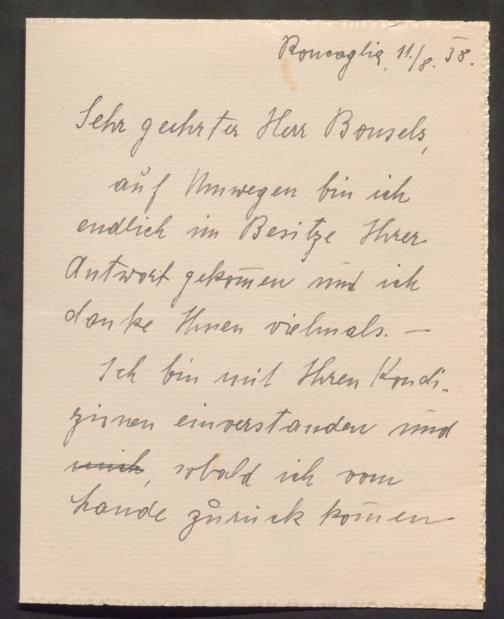 Roncaglia, 11./8. 38.
Sehr geehrter Herr Bonsels,
auf Umwegen bin ich
endlich im Besitze Ihrer
Antwort gekom̄en und ich
danke Ihnen vielmals. —
Ich bin mit Ihren Kondi-
zionen einverstanden und
sobald ich vom
Lande zurück kom̄en